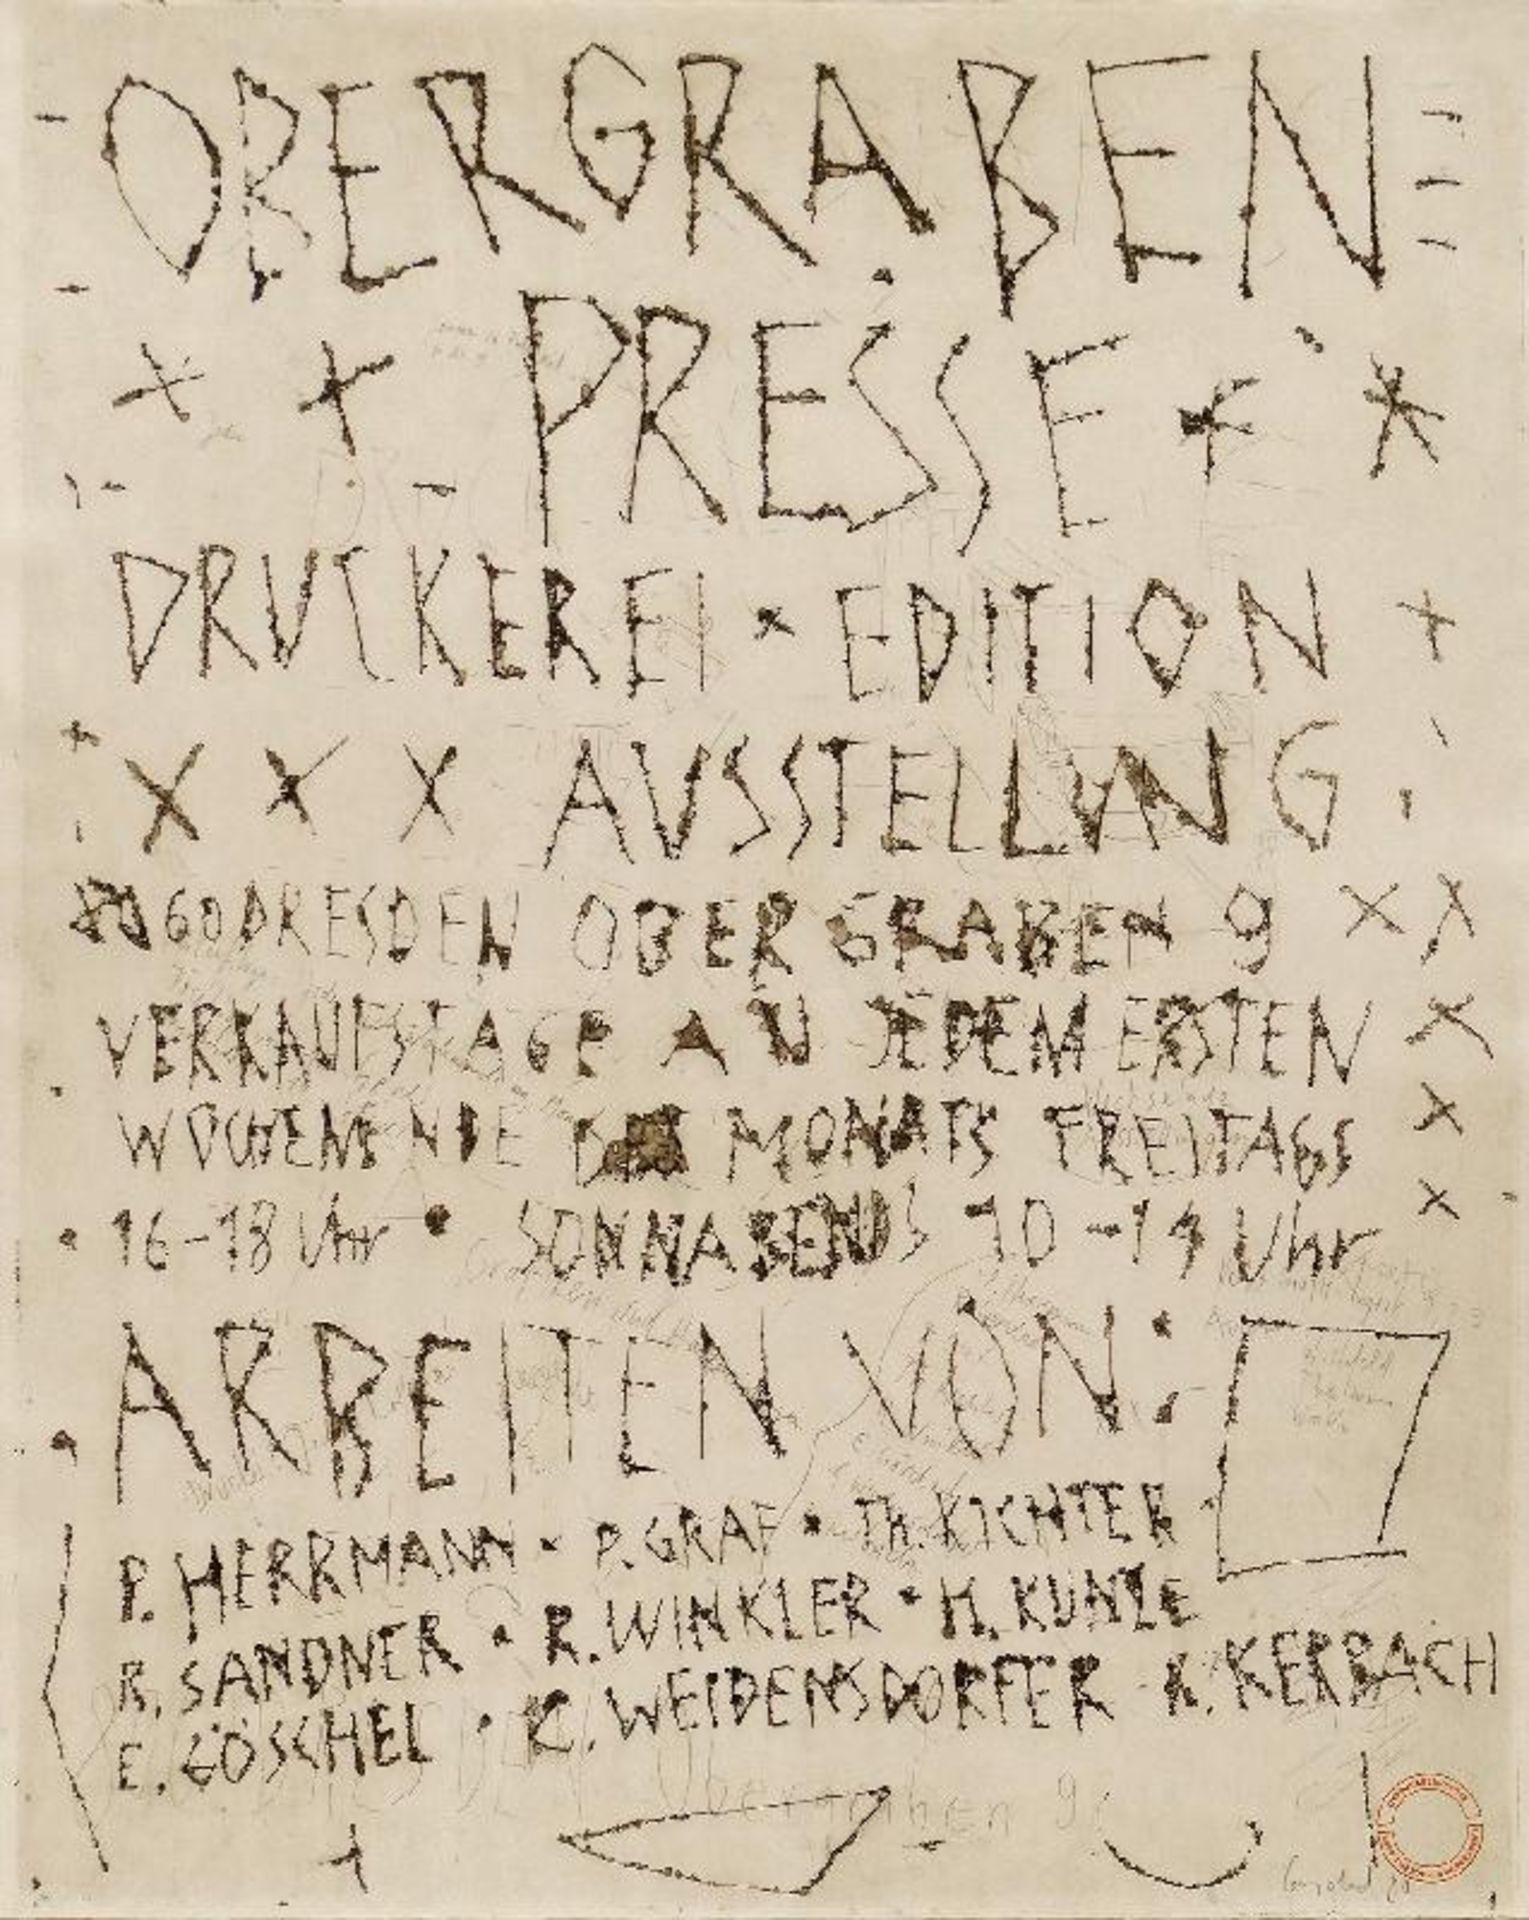 OBERGRABEN=
PRESSE
DRUCKEREI × EDITION
AUSSTELLUNG
8060 DRESDEN OBERGRABEN 9
VERKAUFSTAGE AN JEDEM ERSTEN
WOCHENENDE DES MONATS FREITAGS
16-18 Uhr • SONNABENDS 10-14 Uhr
ARBEITEN VON:
P. HERRMANN • P. GRAF • TH. RICHTER
R. SANDNER • R. WINKLER • H. KUNZE
E. GÖSCHEL • C. WEIDENSDORFER K. KERBACH
Obergraben 9